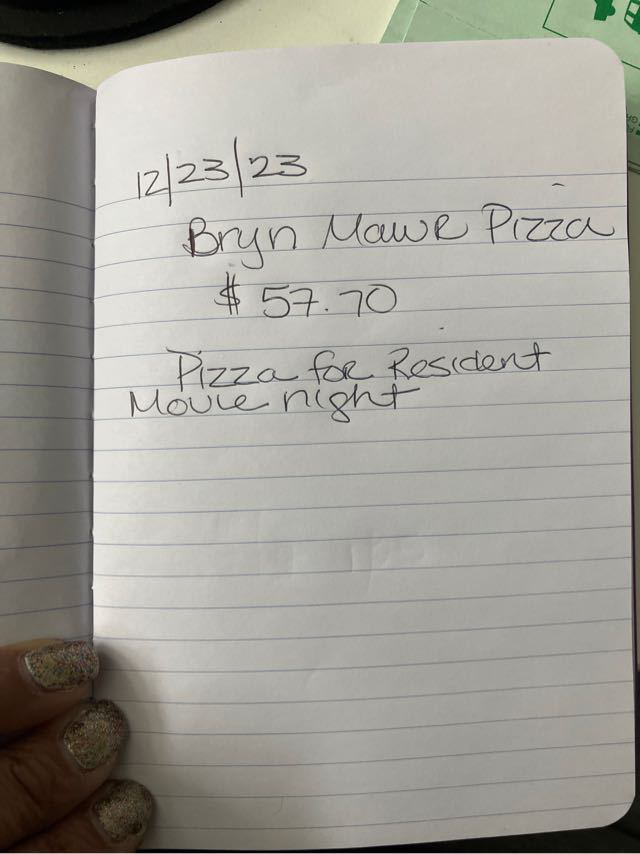 12/23/23
Bryn Mawr Pizza
$ 57.70
Pizza for Resident
Movie night